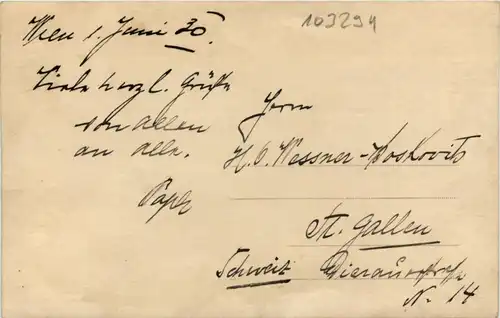 103294
Wien 1. Juni 30.
Viele herzl. Grüße
von allen
an alle.
Herrn
H. O. Wessner-Moskovits
St. Gallen
Schweiz Dierauerstraße
No 14